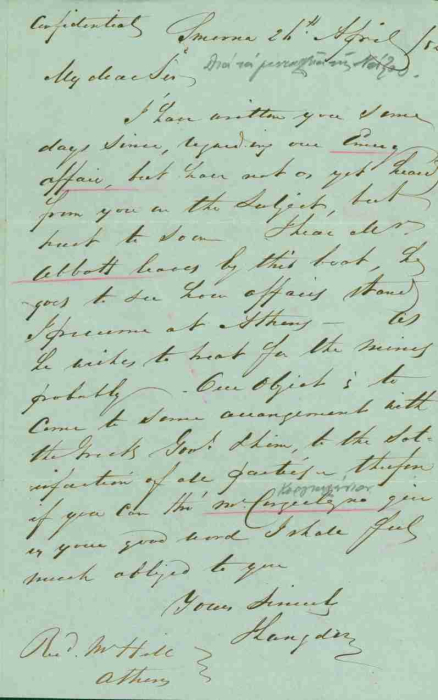 Confidential
Smyrna 24th April
My dear Sir
Διά τά μεταλλεῖα τῆς Νάξου.
I have written you some
days since, regarding our Emery
affair, but have not as yet heard
from you on the subject, but
trust to soon I hear Mr.
Abbott leaves by this boat, he
goes to see how affairs stand
I presume at Athens — as
he wishes to treat for the mines
probably. Our object is to
come to some arrangement with
the Greek Govt. & him, to the sat-
isfaction of all parties — therefore
if you can thro' Mr give
us your good word I shall feel
much obliged to you
Yours Sincerely
Revd. Mr Hill
Athens